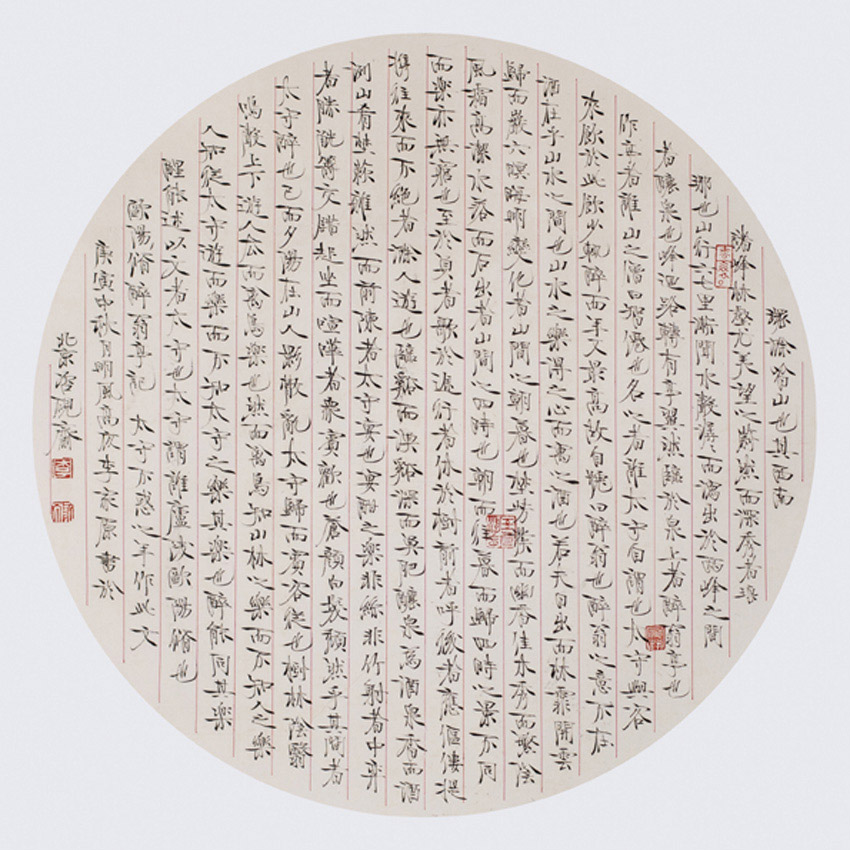 環滁皆山也其西南
諸峰林壑尤美望之蔚然而深秀者瑯
琊也山行六七里漸聞水聲潺〻而瀉出於兩峰之間
者釀泉也峰迴路轉有亭翼然臨於泉上者醉翁亭也
作亭者誰山之僧曰智僊也名之者誰太守自謂也太守與客
來飲於此飲少輒醉而年又最高故自號曰醉翁也醉翁之意不在
酒在乎山水之間也山水之樂得之心而寓之酒也若夫日出而林霏開雲
歸而巖穴暝晦明變化者山間之朝暮也野芳發而幽香佳木秀而繁陰
風霜高潔水落而石出者山間之四時也朝而往暮而歸四時之景不同
而樂亦無窮也至於負者歌於途行者休於樹前者呼後者應傴僂提
攜往來而不絕者滁人遊也臨谿而漁谿深而魚肥釀泉為酒泉香而酒
洌山肴野蔌雜然而前陳者太守宴也宴酣之樂非絲非竹射者中弈
者勝觥籌交錯起坐而喧嘩者眾賓歡也蒼顏白髮頹然乎其間者
太守醉也已而夕陽在山人影散亂太守歸而賓客從也樹林陰翳
鳴聲上下遊人去而禽鳥樂也然而禽鳥知山林之樂而不知人之樂
人知從太守遊而樂而不知太守之樂其樂也醉能同其樂
醒能述以文者太守也太守謂誰廬陵歐陽脩也
歐陽脩醉翁亭記 太守不惑之年作此文
庚寅中秋月明風高夜李家原書於
北京硯齋